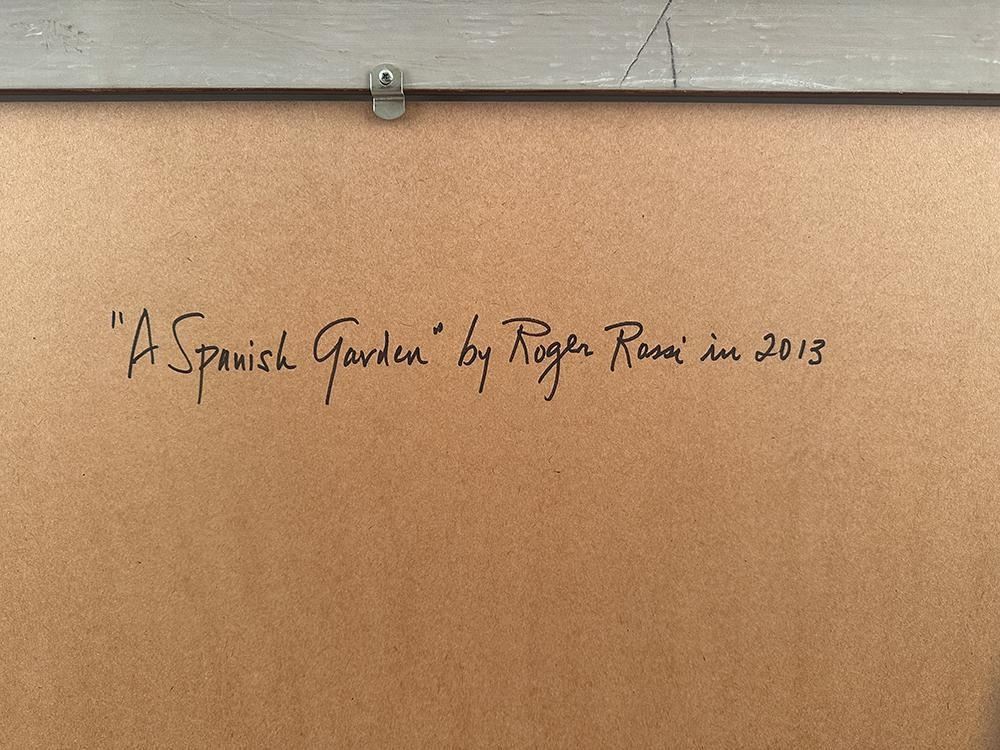 "A Spanish Garden" by Roger Rossi in 2013